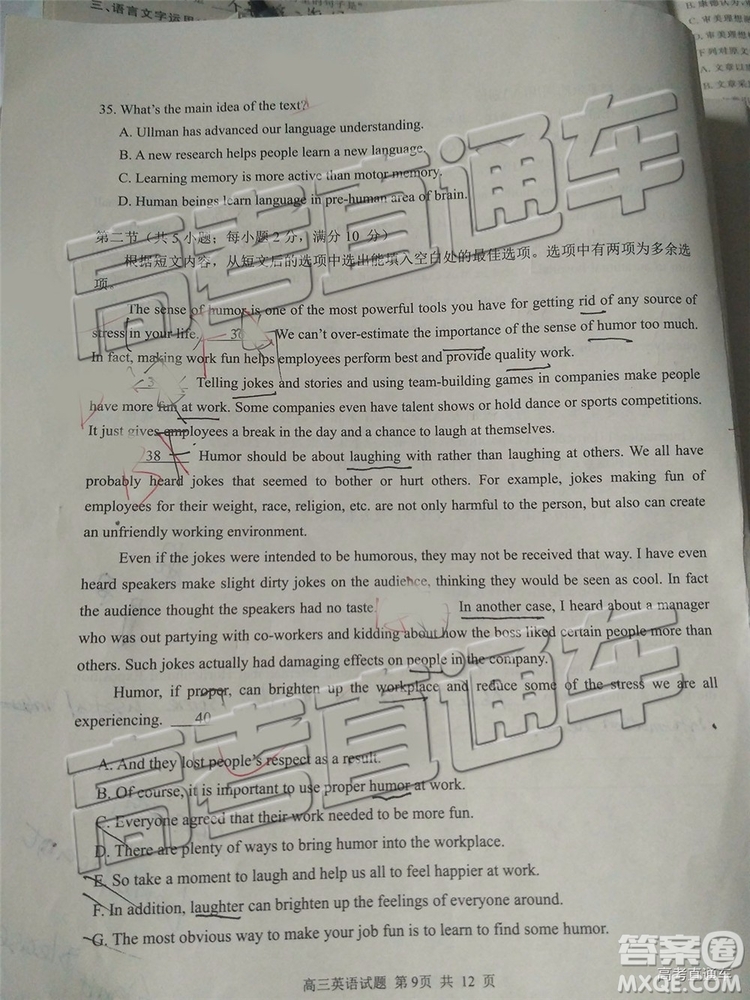 三、语言文字运用
35. What's the main idea of the text?
A. Ullman has advanced our language understanding.
B. A new research helps people learn a new language.
C. Learning memory is more active than motor memory.
D. Human beings learn language in pre-human area of brain.
第二节（共5小题；每小题2分，满分10分）
根据短文内容，从短文后的选项中选出能填入空白处的最佳选项。选项中有两项为多余选
项。
The sense of humor is one of the most powerful tools you have for getting rid of any source of
stress in your life. 36 We can't over-estimate the importance of the sense of humor too much.
In fact, making work fun helps employees perform best and provide quality work.
Telling jokes and stories and using team-building games in companies make people
have more fun at work. Some companies even have talent shows or hold dance or sports competitions.
It just gives employees a break in the day and a chance to laugh at themselves.
38 Humor should be about laughing with rather than laughing at others. We all have
probably heard jokes that seemed to bother or hurt others. For example, jokes making fun of
employees for their weight, race, religion, etc. are not only harmful to the person, but also can create
an unfriendly working environment.
Even if the jokes were intended to be humorous, they may not be received that way. I have even
heard speakers make slight dirty jokes on the audience, thinking they would be seen as cool. In fact
the audience thought the speakers had no taste. In another case, I heard about a manager
who was out partying with co-workers and kidding about how the boss liked certain people more than
others. Such jokes actually had damaging effects on people in the company.
Humor, if proper, can brighten up the workplace and reduce some of the stress we are all
experiencing. 40
A. And they lost people's respect as a result.
B. Of course, it is important to use proper humor at work.
C. Everyone agreed that their work needed to be more fun.
D. There are plenty of ways to bring humor into the workplace.
E. So take a moment to laugh and help us all to feel happier at work.
F. In addition, laughter can brighten up the feelings of everyone around.
G. The most obvious way to make your job fun is to learn to find some humor.
高三英语试题 第9页 共 12 页
高考直通车
高考直通车
高考直通车
答案圈
高考直通车